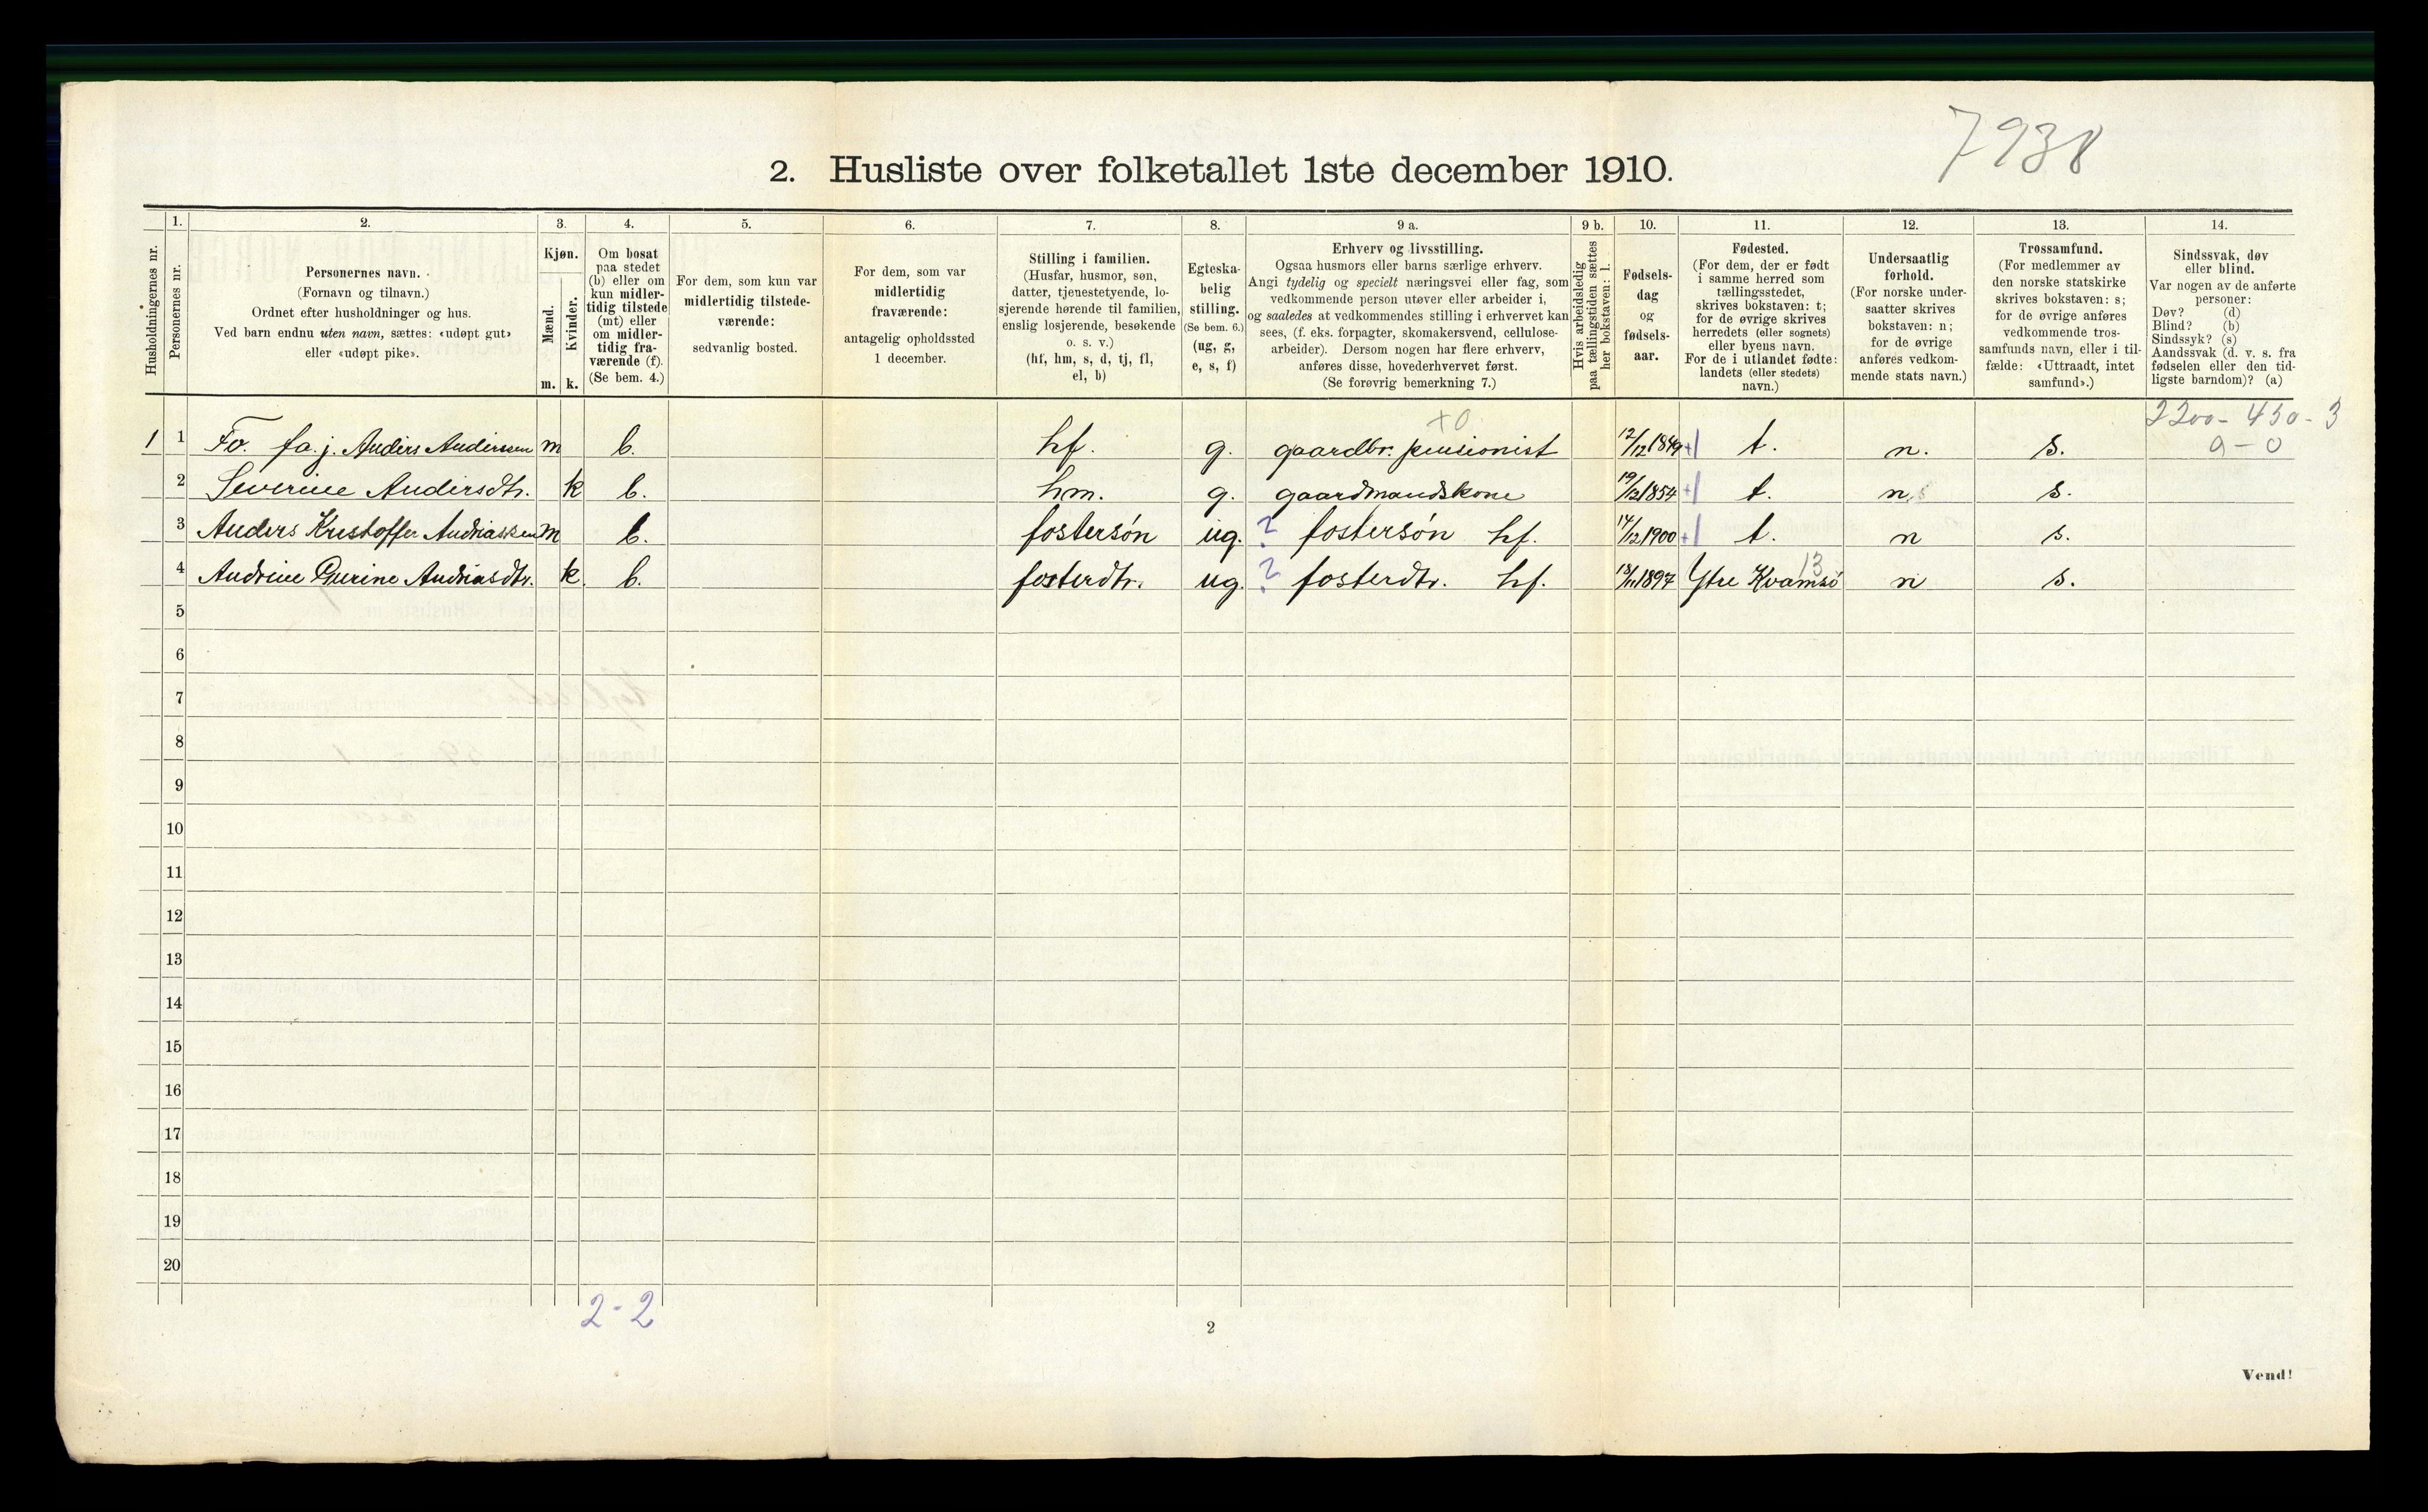 7938
2. Husliste over folketallet 1ste december 1910.
Husholdningernes nr.
1.
Personernes nr.
2.
Personernes navn.
(Fornavn og tilnavn.)
Ordnet efter husholdninger og hus.
Ved barn endnu uten navn, sættes: «udøpt gut»
eller «udøpt pike».
3.
Kjøn.
Mænd.
Kvinder.
m. k.
4.
Om bosat
paa stedet
(b) eller om
kun midler-
tidig tilstede
(mt) eller
om midler-
tidig fra-
værende (f).
(Se bem. 4.)
5.
For dem, som kun var
midlertidig tilstede-
værende:
sedvanlig bosted.
6.
For dem, som var
midlertidig
fraværende:
antagelig opholdssted
1 december.
7.
Stilling i familien.
(Husfar, husmor, søn,
datter, tjenestetyende, lo-
sjerende hørende til familien,
enslig losjerende, besøkende
o. s. v.)
(hf, hm, s, d, tj, fl,
el, b)
8.
Egteska-
belig
stilling.
(Se bem. 6.)
(ug, g,
e, s, f)
9 a.
Erhverv og livsstilling.
Ogsaa husmors eller barns særlige erhverv.
Angi tydelig og specielt næringsvei eller fag, som
vedkommende person utøver eller arbeider i,
og saaledes at vedkommendes stilling i erhvervet kan
sees, (f. eks. forpagter, skomakersvend, cellulose-
arbeider). Dersom nogen har flere erhverv,
anføres disse, hovederhvervet først.
(Se forøvrig bemerkning 7.)
9 b.
Hvis arbeidsledig
paa tællingstiden sættes
her bokstaven: l.
10.
Fødsels-
dag
og
fødsels-
aar.
11.
Fødested.
(For dem, der er født
i samme herred som
tællingsstedet,
skrives bokstaven: t;
for de øvrige skrives
herredets (eller sognets)
eller byens navn.
For de i utlandet fødte:
landets (eller stedets)
navn.)
12.
Undersaatlig
forhold.
(For norske under-
saatter skrives
bokstaven: n;
for de øvrige
anføres vedkom-
mende stats navn.)
13.
Trossamfund.
(For medlemmer av
den norske statskirke
skrives bokstaven: s;
for de øvrige anføres
vedkommende tros-
samfunds navn, eller i til-
fælde: «Uttraadt, intet
samfund».)
14.
Sindssvak, døv
eller blind.
Var nogen av de anførte
personer:
Døv? (d)
Blind? (b)
Sindssyk? (s)
Aandssvak (d. v. s. fra
fødselen eller den tid-
ligste barndom)? (a)
+0 2200 - 450 - 3
1 1 Fo. fa. j. Anders Anderssen m b. hf. g. gaardbr. pensionist 12/12 1849 +| t. n. s. a - 0
2 Severine Andersdtr. k b. hm. g. gaardmandskone 19/12 1854 +| t. n s.
3 Anders Kristoffer Andriassen m b. fostersøn ug. ? fostersøn hf. 14/12 1900 +| t. n s.
13
4 Andrine Gurine Andriasdtr. k. b. fosterdtr. ug. ? fosterdtr. hf. 18/11 1897 Ytre Kvamsö n s.
5
6
7
8
9
10
11
12
13
14
15
16
17
18
19
20
2 - 2
2
Vend!